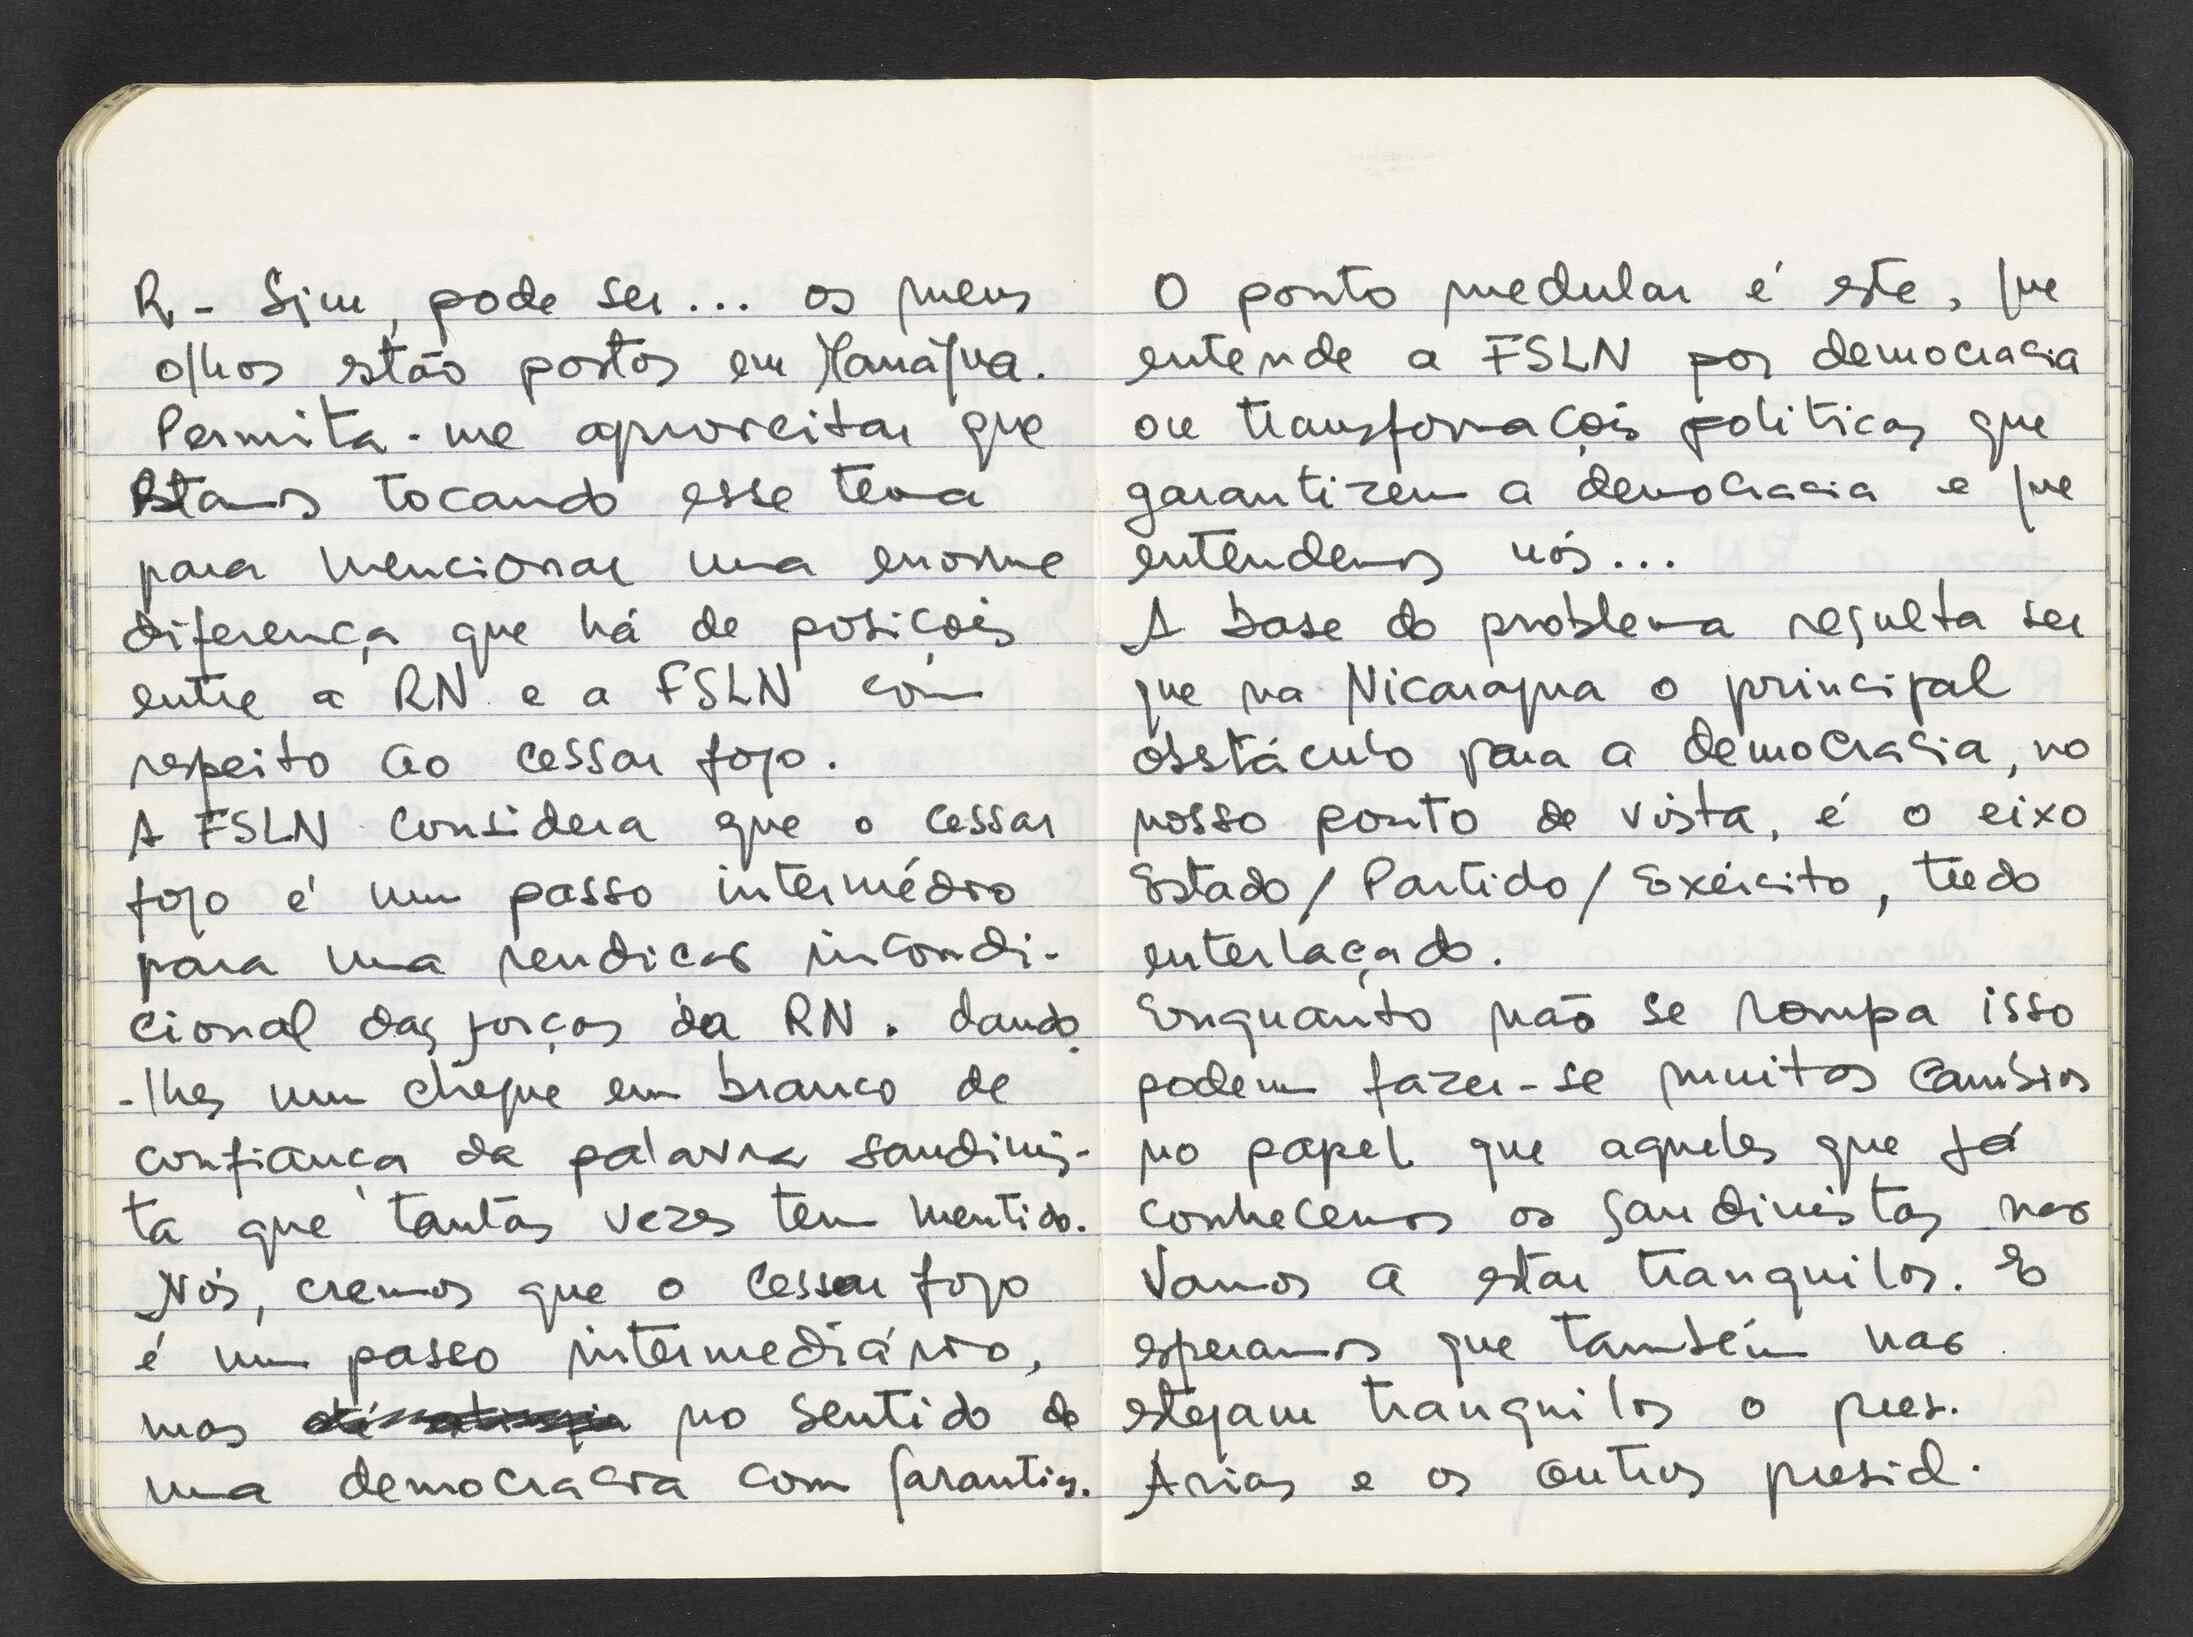 R - Sim, pode ser... os meus
olhos estão postos em Manágua.
Permita-me aproveitar que
estamos tocando esse tema
para mencionar uma enorme
diferença que há de posições
entre a RN e a FSLN com
respeito ao cessar fogo.
A FSLN considera que o cessar
fogo é um passo intermédio
para uma rendicao incondi-
cional das forças da RN. dando
-lhes um cheque em branco de
confiança da palavra sandinis-
ta que tantas vezes tem mentido.
Nós, cremos que o cessar fogo
é um passo intermediário,
mas no sentido de
uma democracia com garantias.
O ponto medular é este, que
entende a FSLN por democracia
ou transformações politicas que
garantizem a democracia e que
entendemos nós...
A base do problema resulta ser
que na Nicaragua o principal
obstáculo para a democracia, no
nosso ponto de vista, é o eixo
Estado / Partido / Exército, tudo
enterlaçado.
Enquanto não se rompa isso
podem fazer-se muitos cambios
no papel que aqueles que já
conhecemos os sandinistas nao
vamos a estar tranquilos. E
esperamos que também nao
estejam tranquilos o pres.
Arias e os outros presid.